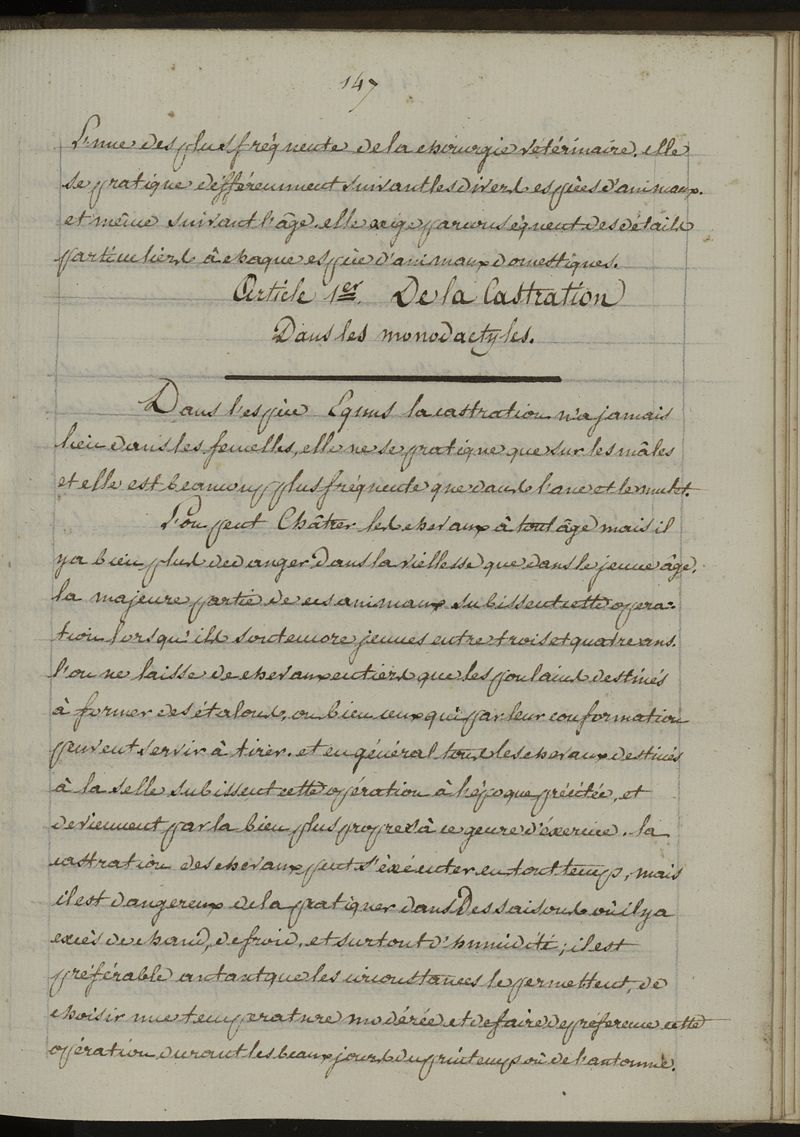 147
L'une des plus fréquente de la chirurgie vétérinaire. elle
se pratique différemment suivant les divers espèces d'animaux.
et même suivant l'âge. elle exige par conséquent des détails
particuliers à chaque espèce d'animaux domestiques.
Article 1er. De la Castration
Dans les monodactyles.
Dans l'espèce Equus la castration n'a jamais
lieu dans les femelles, elle ne se pratique que sur les mâles
et elle est beaucoup plus fréquente que dans l'ane et le mulet.
L'on peut Châtrer les chevaux à tout âge mais il
y a bien plus de danger dans la viellesse que dans le jeune âge.
la majeure partie de ces animaux subissent cette opera-
tion lorsqu'ils sont encore jeunes entre trois et quatre ans.
l'on ne laisse de chevaux entiers que les poulains destinés
à former des étalons, ou bien ceux qui par leur conformation
peuvent servir à tirer. et en général tous les chevaux destinés
à la selle subissent cette opération à l'époque précitée, et
deviennent par la bien plus propres à ce genre d'éxercice. la
castration des chevaux peut s'éxécuter en tout temps, mais
il est dangereux de la pratiquer dans Des saisons où il y a
excès de chaud, de froid, et surtout d'humidité; il est
préférable autant que les circonstances le permettent, de
choisir une temperature modérée et de faire de préférence cette
opération durant les beaux jours du printemps où de l'automne.